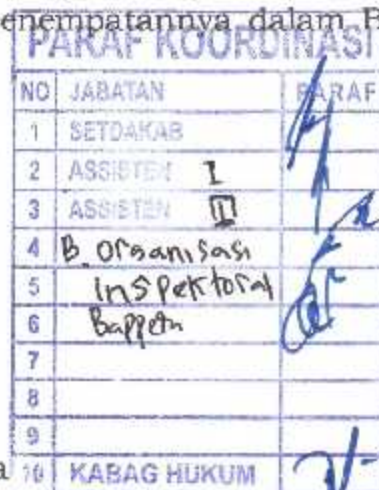 enempatannya dalam B
PARAF KOORDINASI
NO JABATAN PARAF
1 SETDAKAB
2 ASSISTEN I
3 ASSISTEN III
4 B. Organisasi
5 inspektorat
6 Bappeda
7
8
9
a 10 KABAG HUKUM